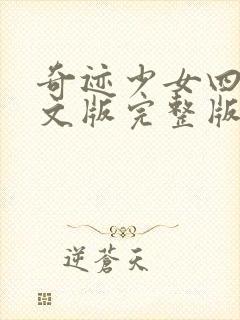 奇迹少女四
文版完整版
逆蒼天